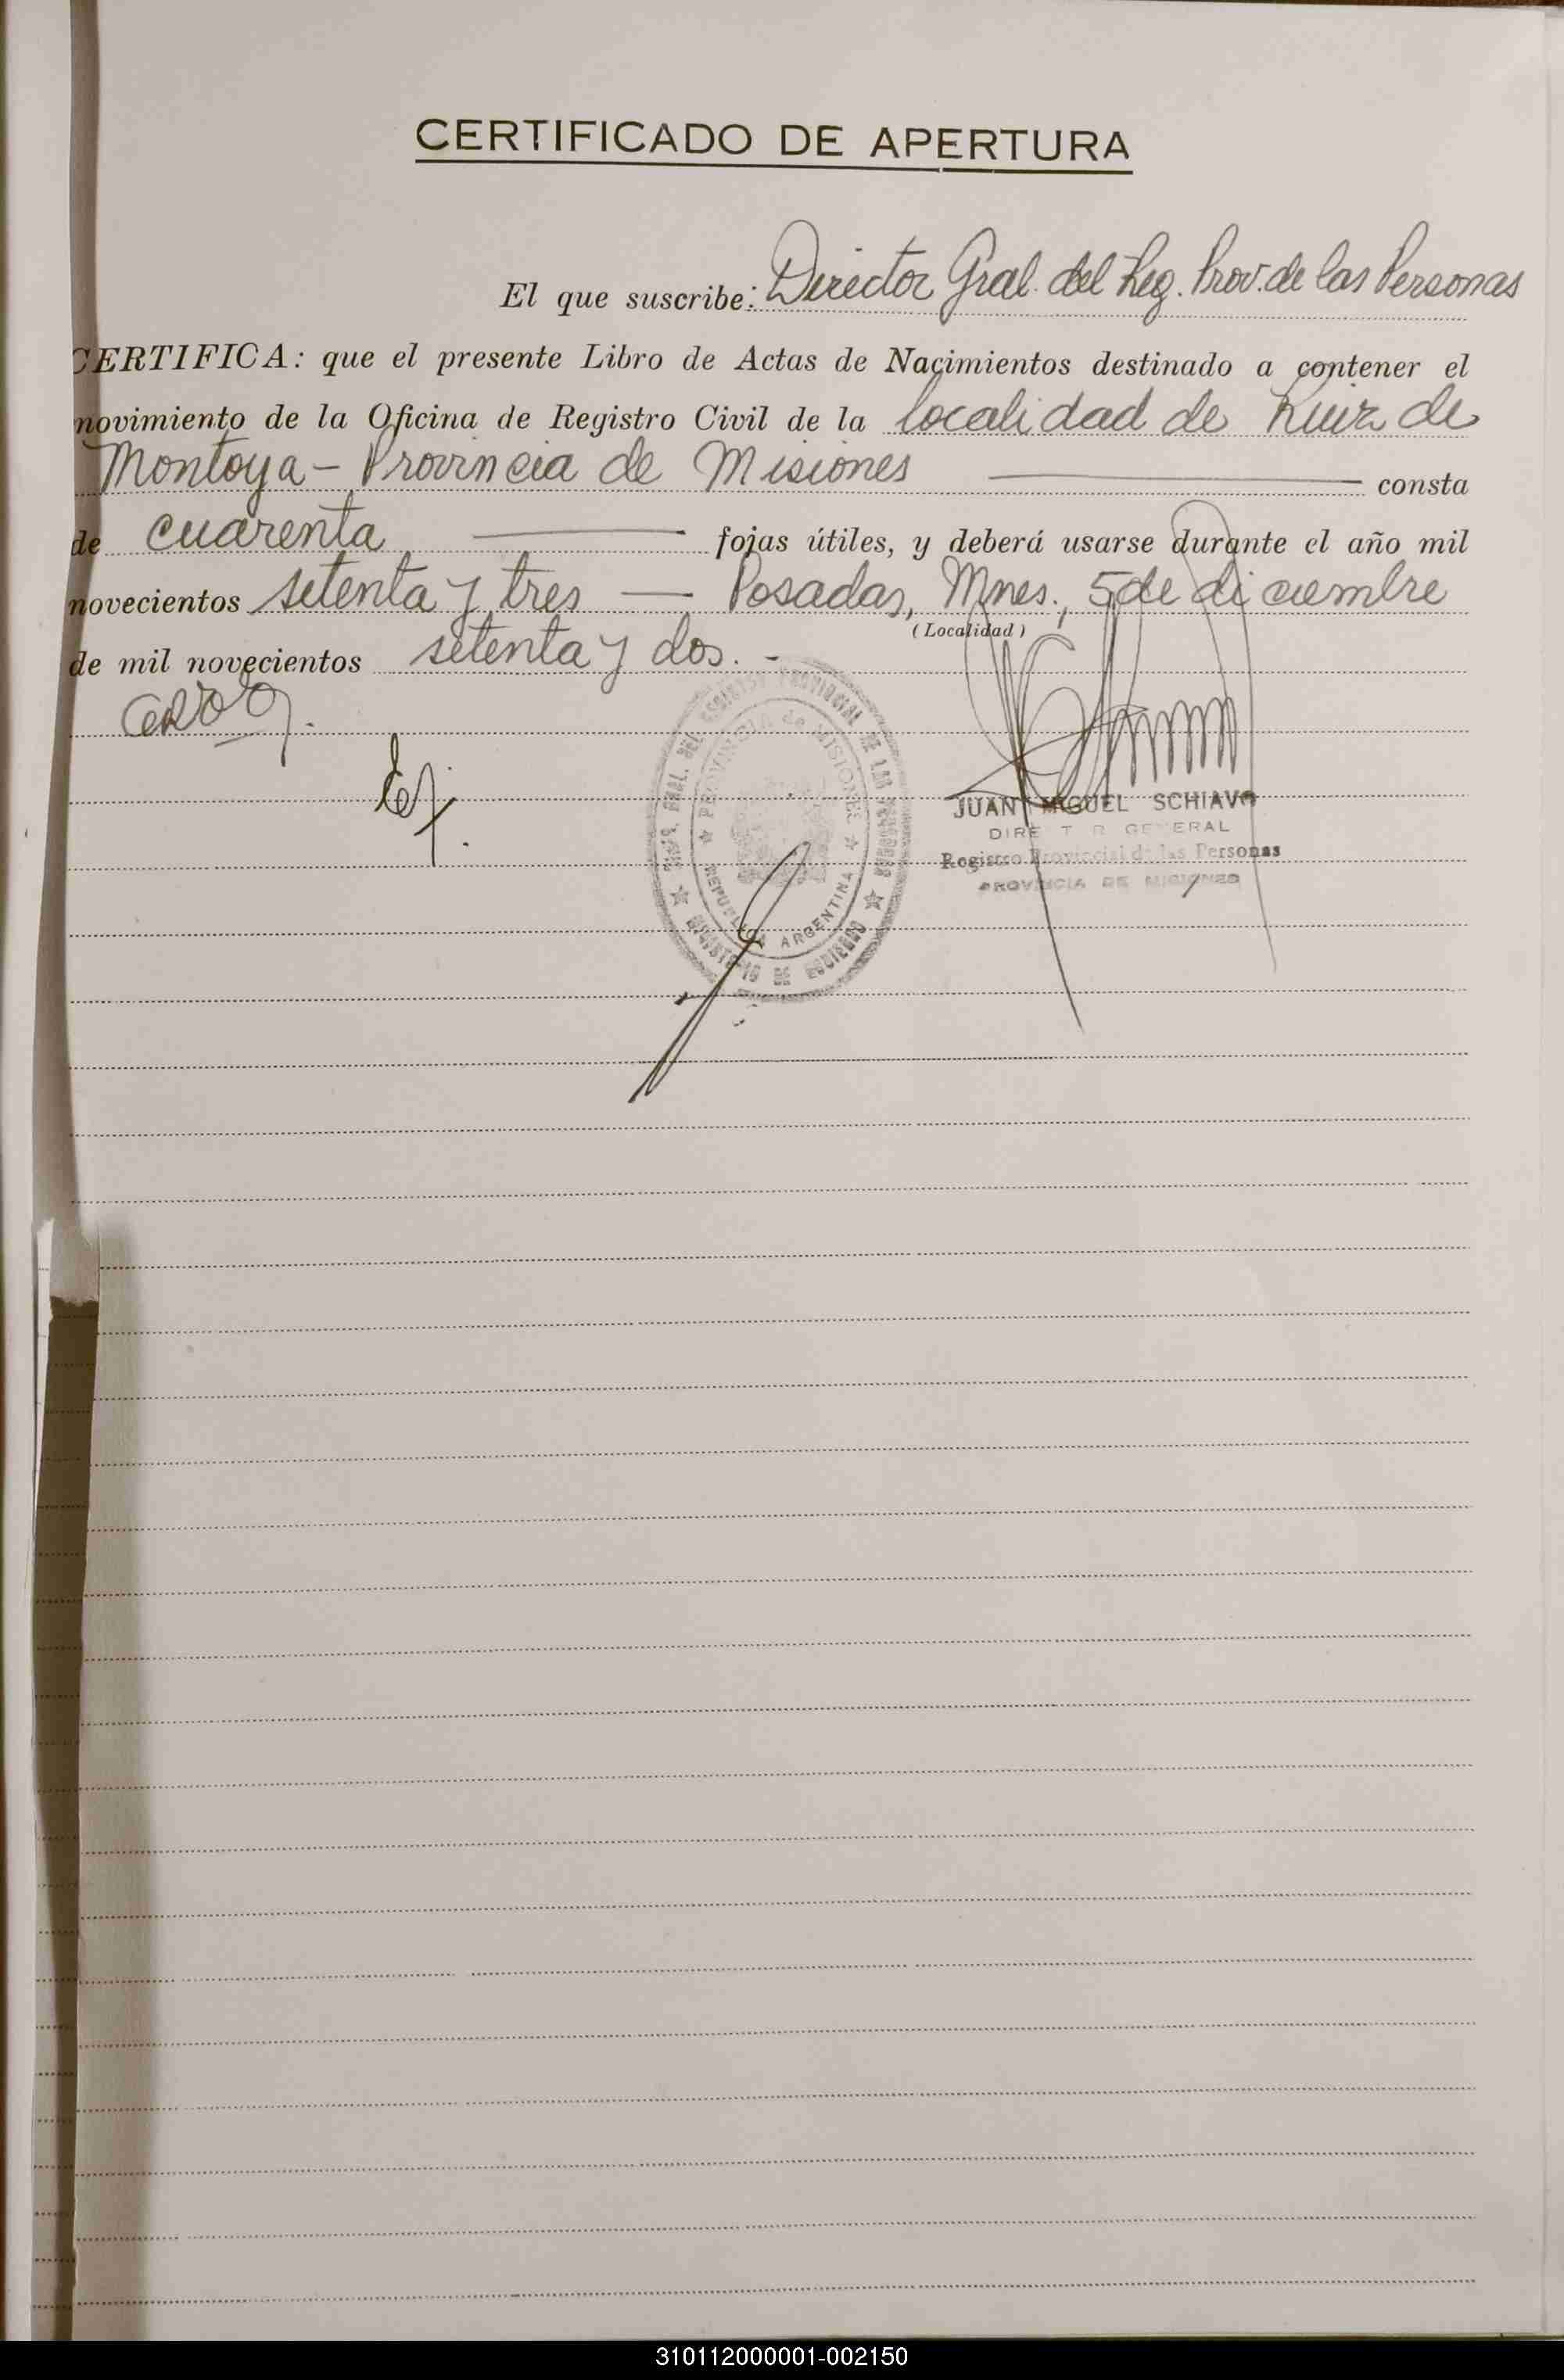 CERTIFICADO DE APERTURA
El que suscribe: Director Gral. del Reg. Prov. de las Personas
CERTIFICA: que el presente Libro de Actas de Nacimientos destinado a contener el
movimiento de la Oficina de Registro Civil de la localidad de Ruiz de
Montoya - Provincia de Misiones — consta
de cuarenta — fojas útiles, y deberá usarse durante el año mil
novecientos setenta y tres — Posadas, Mnes., 5 de diciembre
(Localidad)
de mil novecientos setenta y dos. -
PROVINCIA de MISIONES
REPUBLICA ARGENTINA
GRAL. DEL REGISTRO PROVINCIAL DE LAS PERSONAS
MINISTERIO DE GOBIERNO
JUAN MIGUEL SCHIAVO
DIRECTOR GENERAL
Registro Provincial de las Personas
PROVINCIA DE MISIONES
310112000001-002150